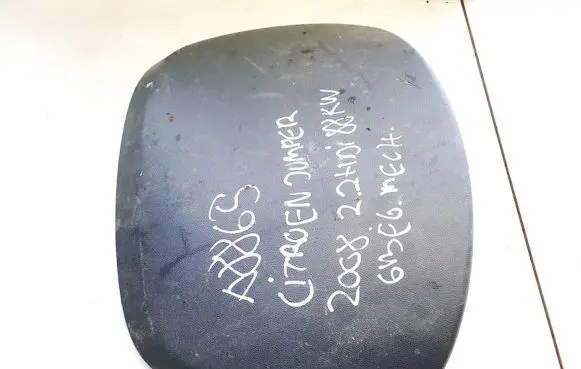 A8865
CITROEN JUMPER
2008 2.2HDi 88KW
6B/6. MECH.